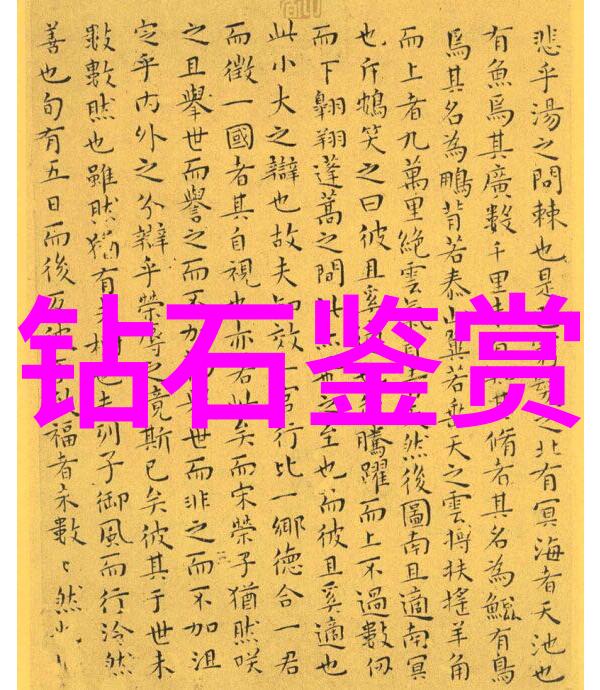 悲乎湯之問棘也是之北有冥海者天池也
有魚焉其廣數千里其脩者其名為鯤有鳥
焉其名為鵬背若泰山翼若垂天之雲摶扶搖羊角
而上者九萬里絕雲氣天然後圖南且適南冥
也斥鴳笑之曰彼且奚騰躍而上不過數仞
而下翱翔蓬蒿之間此之至也而彼且奚適也
此小大之辯也故夫知效一官行比一鄉德合一君
而徵一國者其自視也亦若此矣而宋榮子猶然咲
之且舉世而譽之而不加舉世而非之而不加沮
定乎內外之分辯乎榮辱之竟斯已矣彼其于世未
數數然也雖然猶有未樹也夫列子御風而行泠然
善也旬有五日而後反彼福者未數〻然也
钻石鉴赏